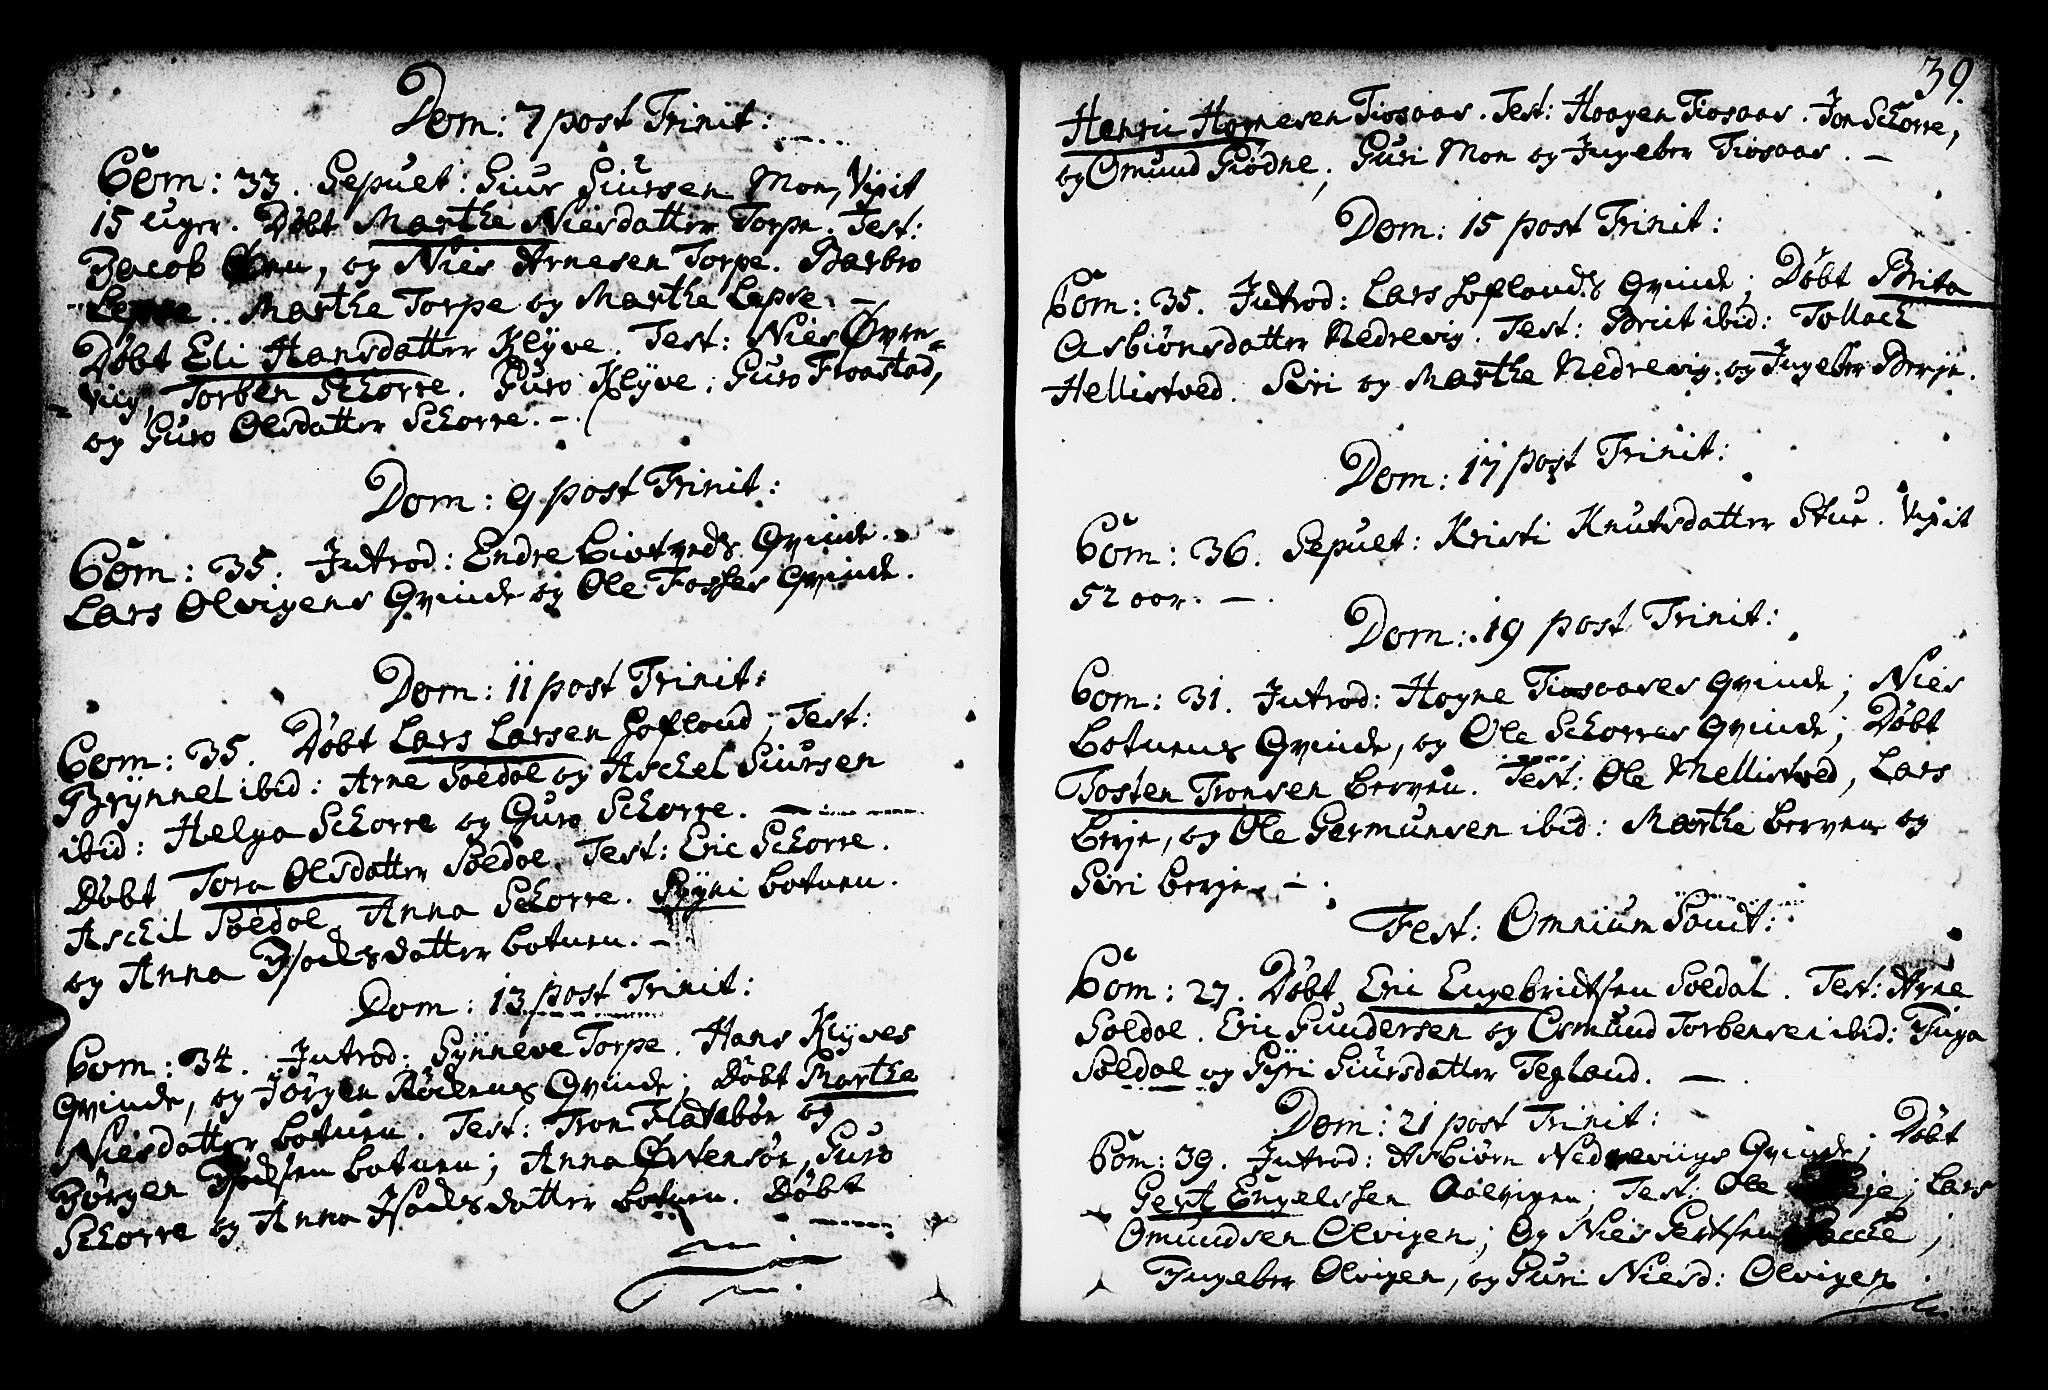 Dom: 7 post Trinit:
Com: 33. Sepult: Siur Siursen Mon, Vixit
15 Uger. Døbt Marthe Nielsdatter Torpe. Test:
Jacob , og Niels Arnesen Torpe. Barbro
Lepsø. Marthe Torpe og Marthe Lepsø. —
Døbt Eli Hansdatter Klÿve. Test: Niels Øvre-
vig, Torben Schorre. Guro Klÿve. Guro Froastad,
og Guro Olsdatter Schorre. —
Dom: 9 post Trinit:
Com: 35. Introd: Endre Qvinde.
Lars Olvigens Qvinde og Ole Fosses Qvinde.
Dom: 11 post Trinit:
Com: 35. Døbt Lars Larsen Sofland; Test:
Brÿnnel ibid: Arne Soldol og Aschel Siursen
ibid: Helga Schorre og Guro Schorre. —
Døbt Tora Olsdatter Soldol. Test: Eric Schorre.
Aschil Soldol. Anna Schorre. Botnen.
og Anna Isachsdatter Botnen. —
Dom: 13 post Trinit:
Com: 34. Introd: Sÿnneve Torpe. Hans Klÿves
Qvinde, og Jørgen Qvinde; Døbt Marthe
Nielsdatter Botnen. Test: Tron Flatebøe og
Jørgen Botnen; Anna Østensøe, Guro
Schorre og Anna Isachsdatter Botnen. Døbt
39.
Henric Høgnesen Tiosaas. Test: Haagen Tiosaas. Jon Schorre,
og Omund Giødne, Guri Mon og Ingeber Tiosaas. —
Dom: 15 post Trinit:
Com: 35. Introd: Lars Soflands Qvinde; Døbt Brita
Asbiønsdatter Nedrevig. Test: ibid: Tollach
Hellistved. Siri og Marthe Nedrevig, og Ingeber Berje.
Dom: 17 post Trinit:
Com: 36. Sepult: Kristi Knutsdatter Stue. Vixit
52 aar. —
Dom: 19 post Trinit:
Com: 31. Introd: Høgne Tiosaases Qvinde; Niels
Botnens Qvinde, og Ole Schorres Qvinde; Døbt
Tosten Tronsen Berven. Test: Ole Mellistved, Lars
Berje, og Ole Germunsen ibid: Marthe Berven og
Siri Berje. —
Fest: Omnium Sanct:
Com: 27. Døbt Eric Engebrictsen Soldal. Test: Arne
Soldol. Eric Gundersen og Osmund Torbensen ibid: Inga
Soldol og Siri Siursdatter Tegland. —
Dom: 21 post Trinit:
Com: 39. Introd: Asbiørn Nedreviigs Qvinde; Døbt
Gert Engelssen Aalvigen; Test: Ole ; Lars
Omundsen Olvigen; Og Niels Gertsen ;
Ingeber Olvigen, og Guri Nielsd: Olvigen.